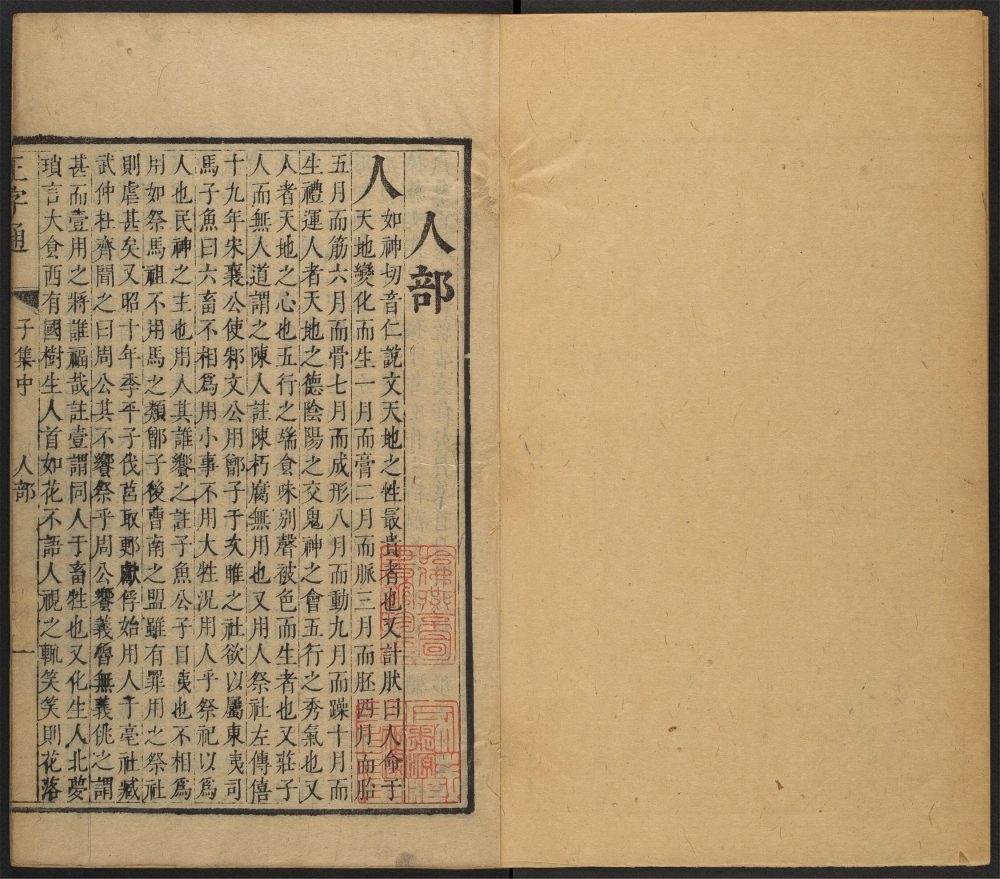 人部
人
如神切音仁說文天地之性最貴者也又計肰曰人命于
天地變化而生一月而膏二月而脈三月而胚四月而胎
五月而筋六月而骨七月而成形八月而動九月而躁十月而
生禮運人者天地之德陰陽之交鬼神之會五行之秀氣也又
人者天地之心也五行之端食味別聲被色而生者也又莊子
人而無人道謂之陳人註陳朽腐無用也又用人祭社左傳僖
十九年宋襄公使邾文公用鄫子于次睢之社欲以屬東夷司
馬子魚曰六畜不相爲用小事不用大牲況用人乎祭祀以爲
人也民神之主也用人其誰饗之註子魚公子目夷也不相爲
用如祭馬祖不用馬之類鄫子後曹南之盟雖有罪用之祭社
則虐甚矣又昭十年季平子伐莒取郠獻俘始用人于亳社臧
武仲杜齊聞之曰周公其不饗祭乎周公饗義魯無義佻之謂
甚而壹用之將誰福哉註壹謂同人于畜牲也又化生人北夢
瑣言大食西有國樹生人首如花不語人視之輒笑笑則花落
正字通
子集中
人部
一
哈佛燕京圖